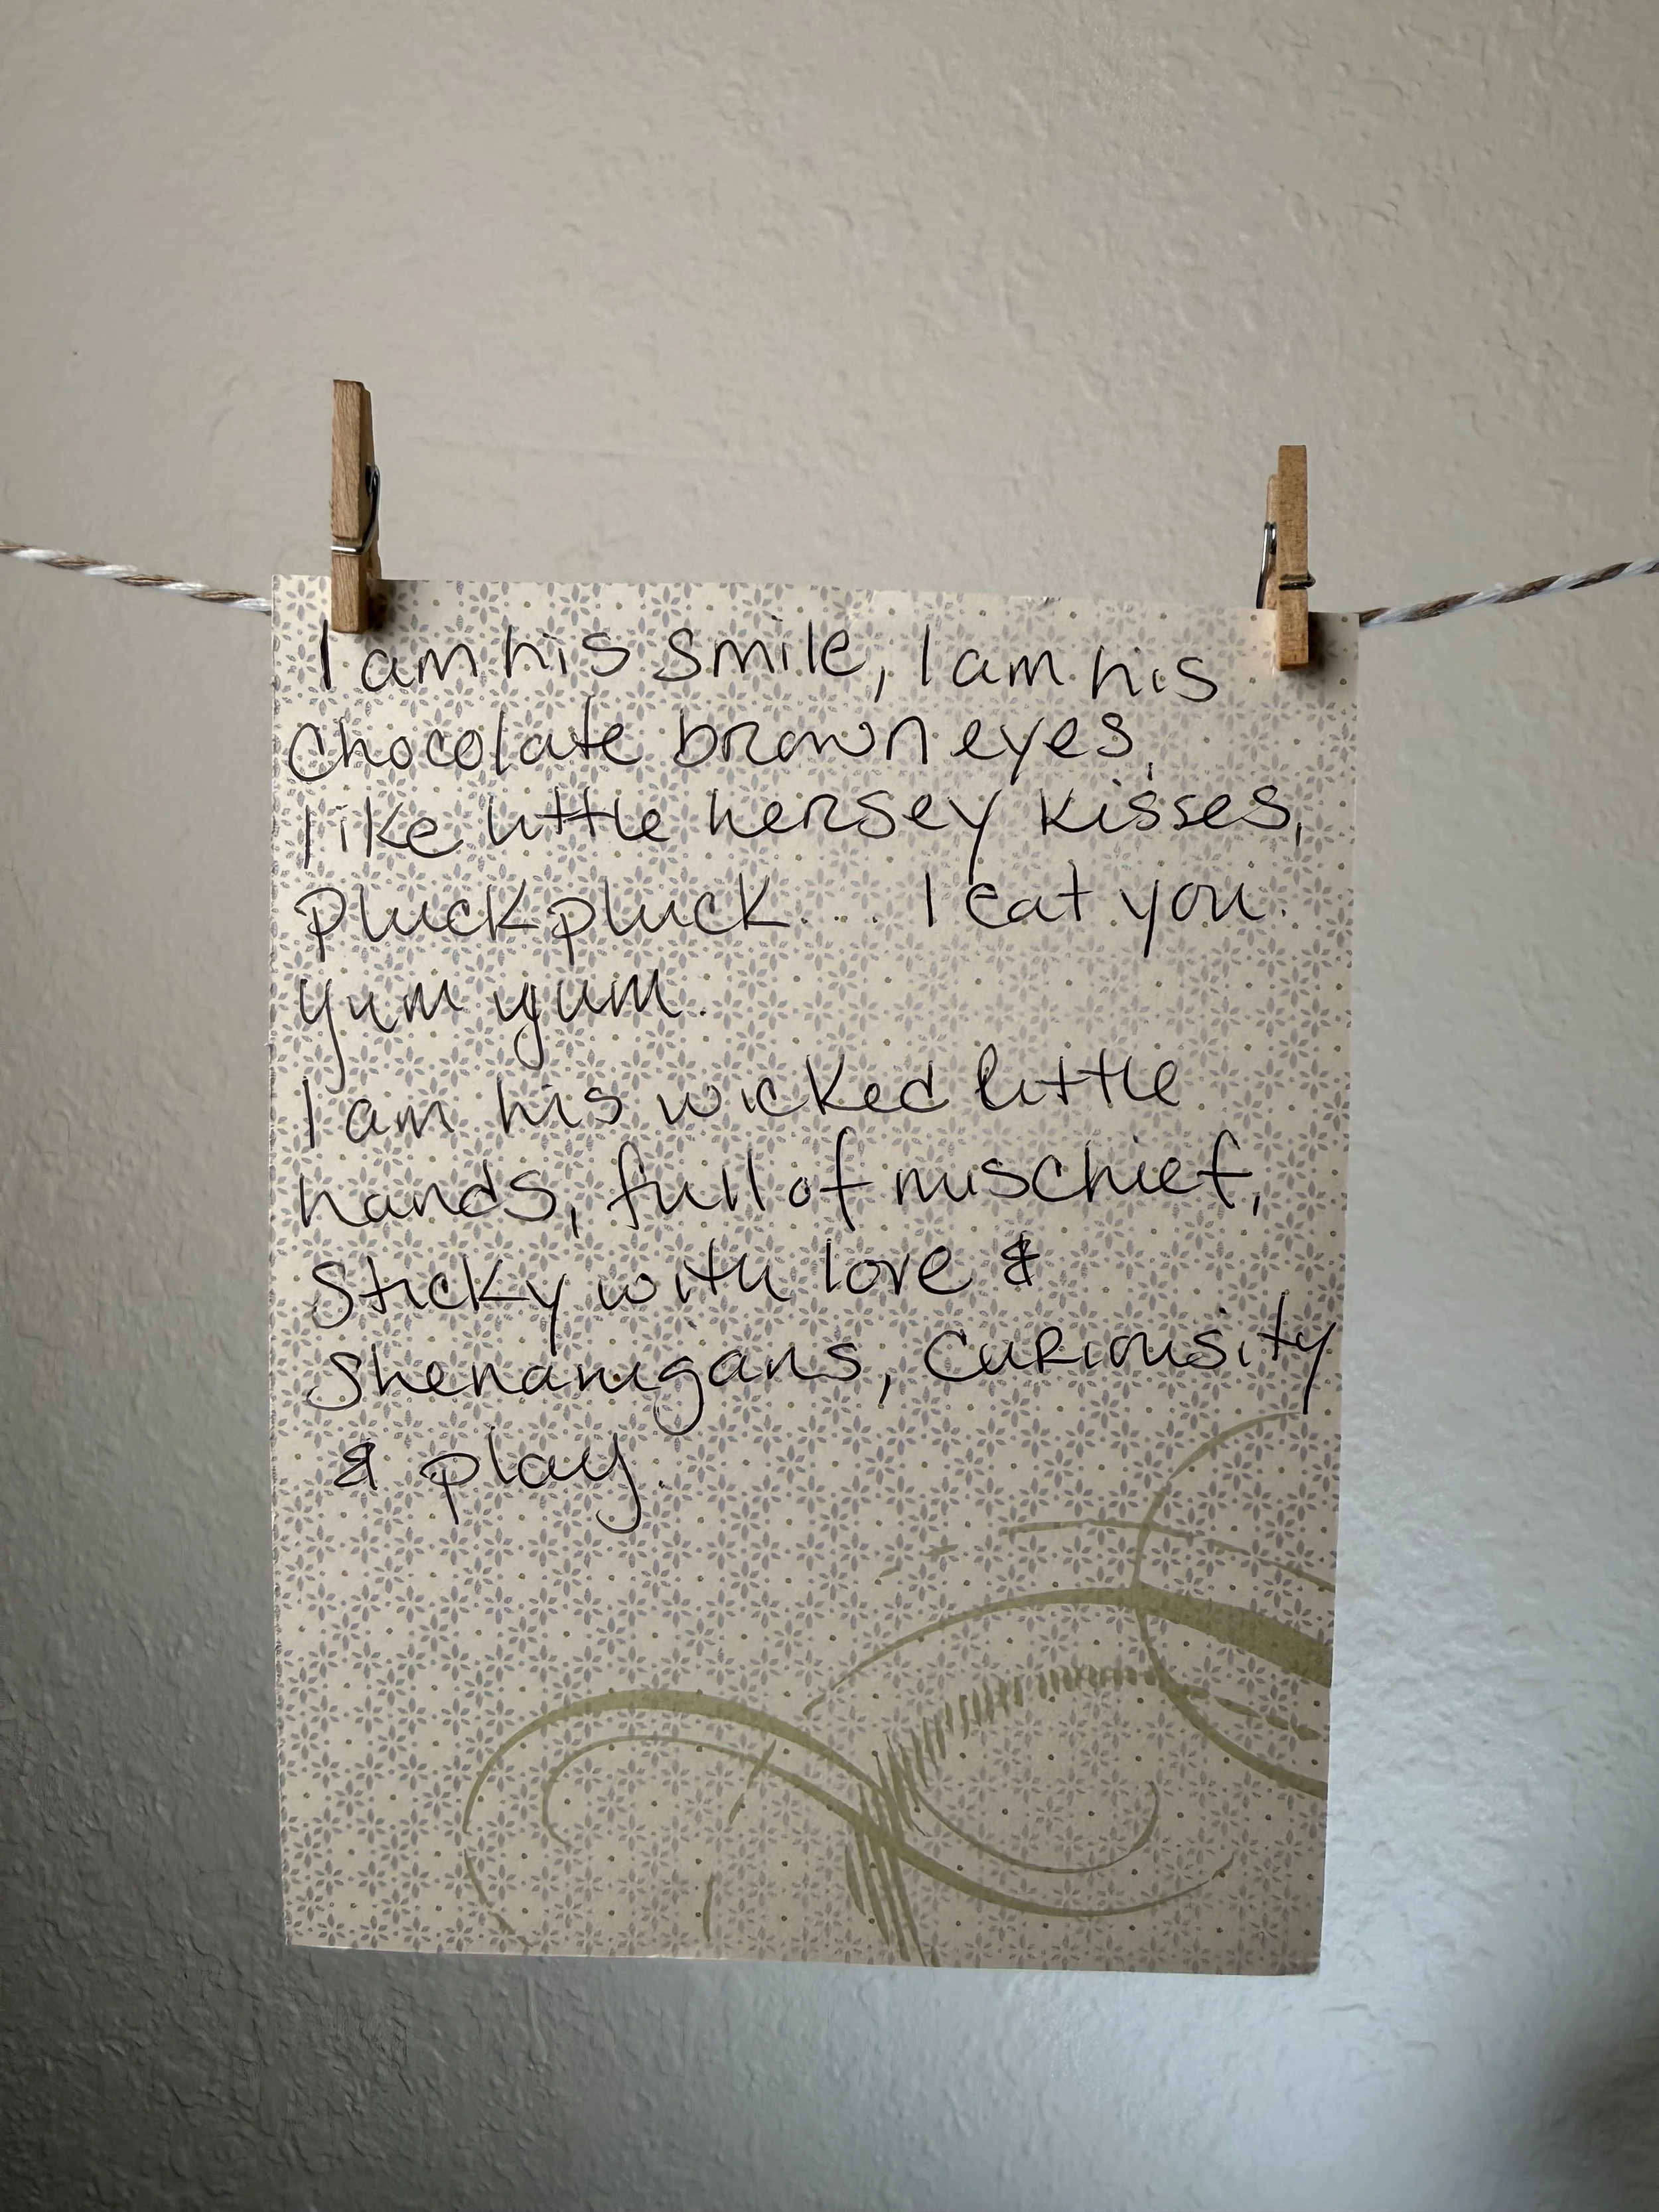 I am his smile, I am his
chocolate brown eyes,
like little hersey kisses,
pluck pluck... I eat you.
yum yum.
I am his wicked little
hands, full of mischief,
sticky with love &
shenanigans, curiousity
& play.